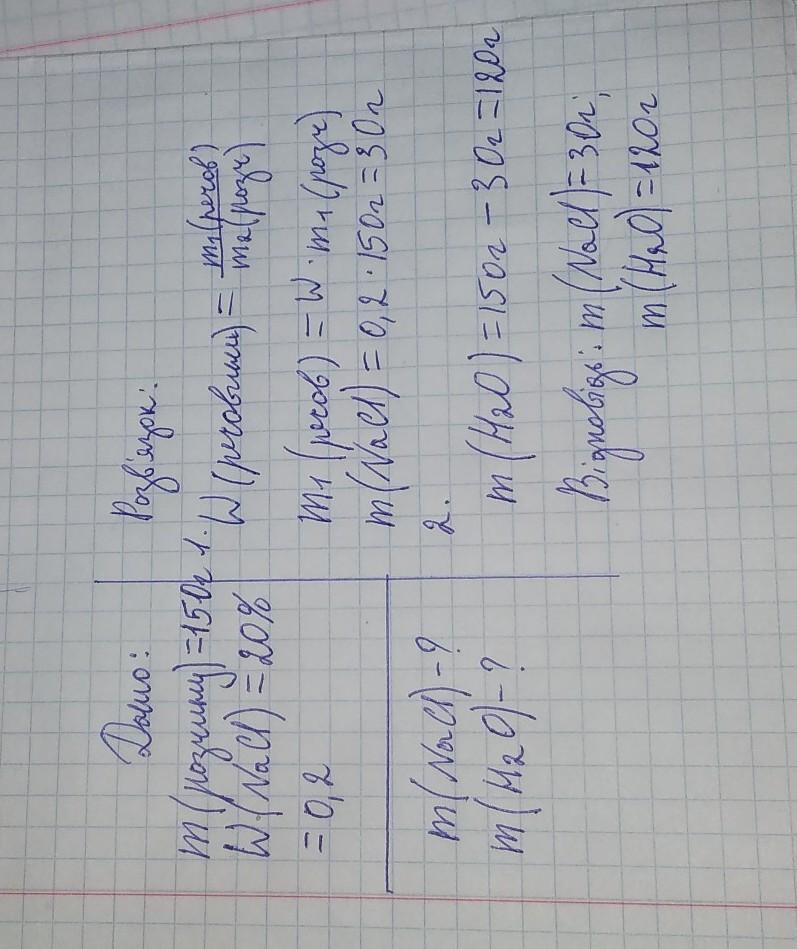 Дано:
m(розчину)=150г
W(NaCl)=20%
=0,2
m(NaCl)-?
m(H2O)-?
Розв'язок:
1. W(речовини) = m1(речов) / m2(розч)
m1(речов) = W · m1(розч)
m(NaCl) = 0,2 · 150г = 30г
2.
m(H2O) = 150г - 30г = 120г
Відповідь: m(NaCl) = 30г;
m(H2O) = 120г